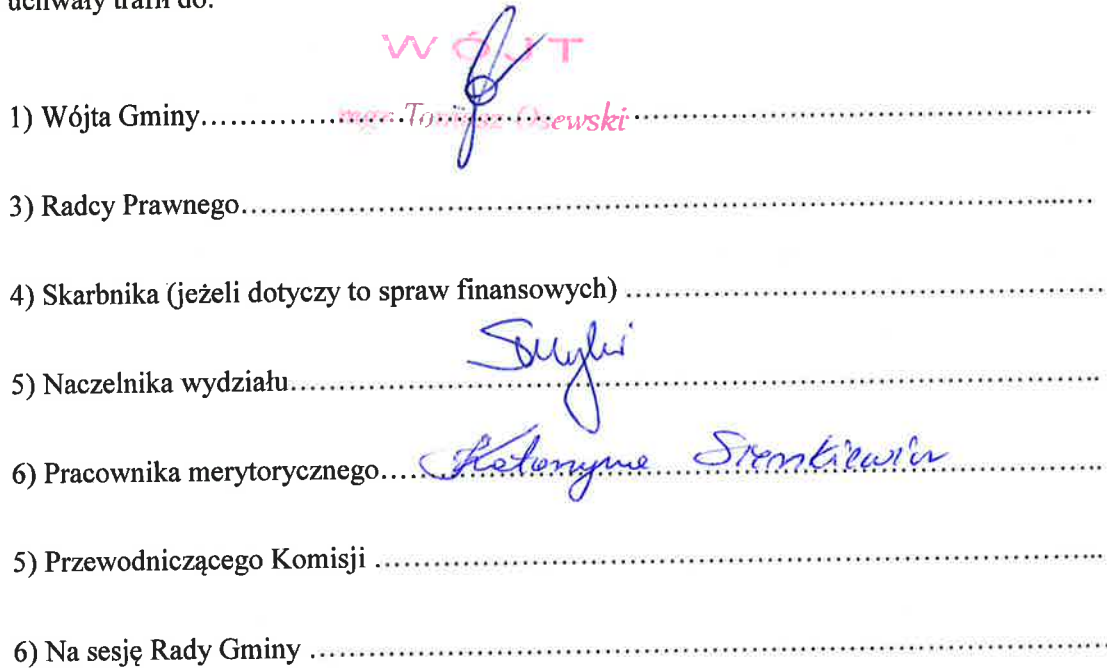 uchwały trafił do:
WÓJT
1) Wójta Gminy.............mgr Tomasz Osewski.............
3) Radcy Prawnego.............
4) Skarbnika (jeżeli dotyczy to spraw finansowych) .............
5) Naczelnika wydziału.............
6) Pracownika merytorycznego..... Katarzyna Sienkiewicz
5) Przewodniczącego Komisji .............
6) Na sesję Rady Gminy .............